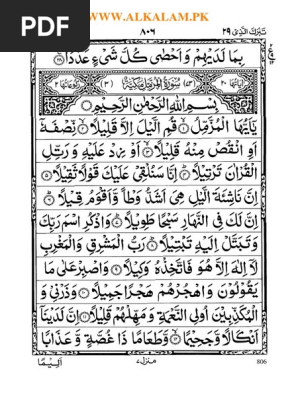 PDF
WWW.ALKALAM.PK
تَبٰرَكَ الَّذِىْ ٢٩
٨٠٦
بِمَا لَدَيْهِمْ وَ اَحْصٰى كُلَّ شَىْءٍ عَدَدًا ﴿٢٨﴾
(٧٣) سُوْرَةُ الْمُزَّمِّلِ مَكِّيَّةٌ (٣)
بِسْمِ اللهِ الرَّحْمٰنِ الرَّحِيْمِ
يٰۤاَيُّهَا الْمُزَّمِّلُ ﴿١﴾ قُمِ الَّيْلَ اِلَّا قَلِيْلًا ﴿٢﴾ نِّصْفَهٗۤ
اَوِ انْقُصْ مِنْهُ قَلِيْلًا ﴿٣﴾ اَوْ زِدْ عَلَيْهِ وَ رَتِّلِ
الْقُرْاٰنَ تَرْتِيْلًا ﴿٤﴾ اِنَّا سَنُلْقِىْ عَلَيْكَ قَوْلًا ثَقِيْلًا ﴿٥﴾
اِنَّ نَاشِئَةَ الَّيْلِ هِىَ اَشَدُّ وَطْاً وَّ اَقْوَمُ قِيْلًا ﴿٦﴾
اِنَّ لَكَ فِى النَّهَارِ سَبْحًا طَوِيْلًا ﴿٧﴾ وَ اذْكُرِ اسْمَ رَبِّكَ
وَ تَبَتَّلْ اِلَيْهِ تَبْتِيْلًا ﴿٨﴾ رَبُّ الْمَشْرِقِ وَ الْمَغْرِبِ
لَاۤ اِلٰهَ اِلَّا هُوَ فَاتَّخِذْهُ وَكِيْلًا ﴿٩﴾ وَ اصْبِرْ عَلٰى مَا
يَقُوْلُوْنَ وَ اهْجُرْهُمْ هَجْرًا جَمِيْلًا ﴿١٠﴾ وَ ذَرْنِىْ وَ
الْمُكَذِّبِيْنَ اُولِى النَّعْمَةِ وَ مَهِّلْهُمْ قَلِيْلًا ﴿١١﴾ اِنَّ لَدَيْنَاۤ
اَنْكَالًا وَّ جَحِيْمًا ﴿١٢﴾ وَّ طَعَامًا ذَا غُصَّةٍ وَّ عَذَابًا
اَلِيْمًا
منزل ٧
806